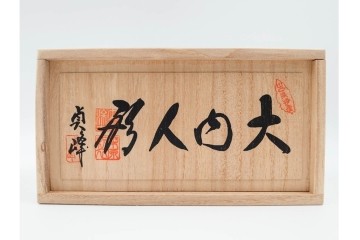 大内人形
貞峰